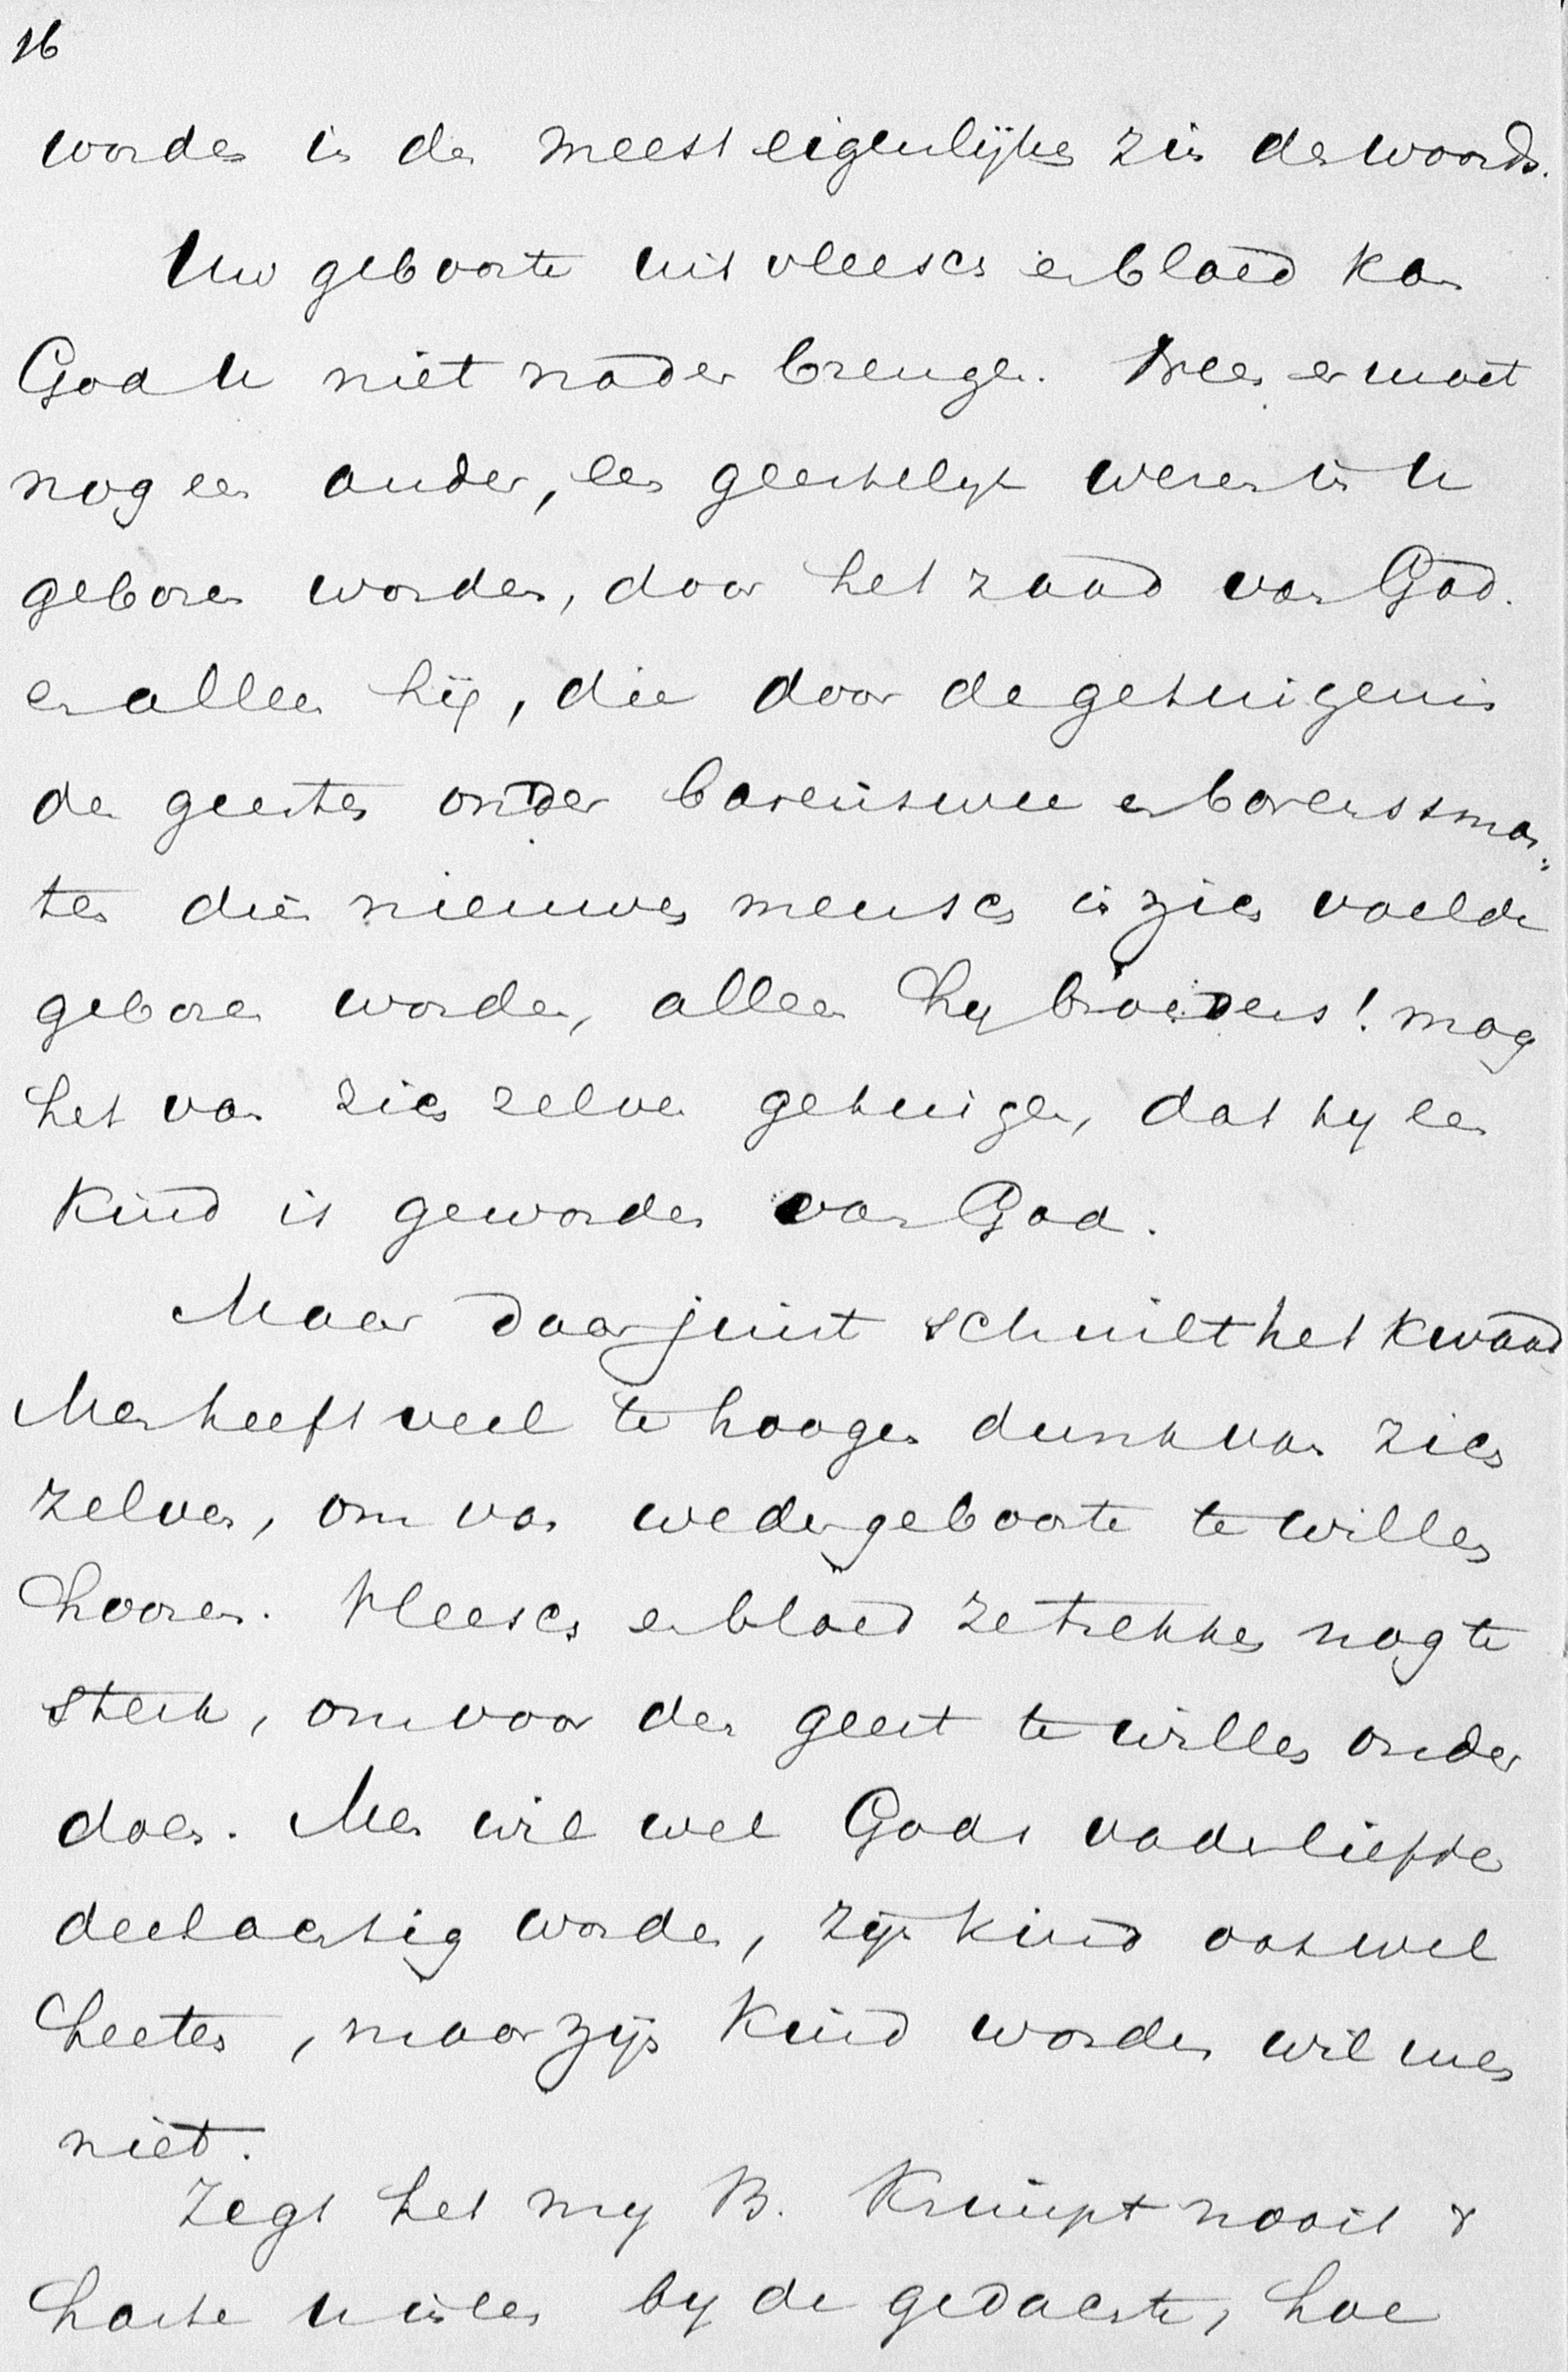 16
worden in den meest eigenlijken zin des woords.
Uw geboorte uit vleesch en bloed kan
God U niet nader brengen. Neen er moet
nog een ander, een geestelyk wezen in U
geboren worden, door het zaad van God.
en alleen hij, die door de getuigenis
des geestes onder barenswee en barenssmar-
ten dien nieuwen mensch in zich voelde
geboren worden, alleen hy broeders! mag
het van zich zelven getuigen, dat hy een
Kind is geworden van God.
Maar daar juist schuilt het kwaad
Men heeft veel te hoogen dunk van zich
zelven, om van wedergeboorte te willen
hooren. Vleesch en bloed ze trekken nog te
sterk, om voor den geest te willen onder
doen. Men wil wel Gods vaderliefde
deelachtig worden, zijn kind ook wel
heeten, maar zijn Kind worden wil men
niet.
Zegt het my B. Krimpt nooit Uw
harte U ineen by de gedachte, hoe